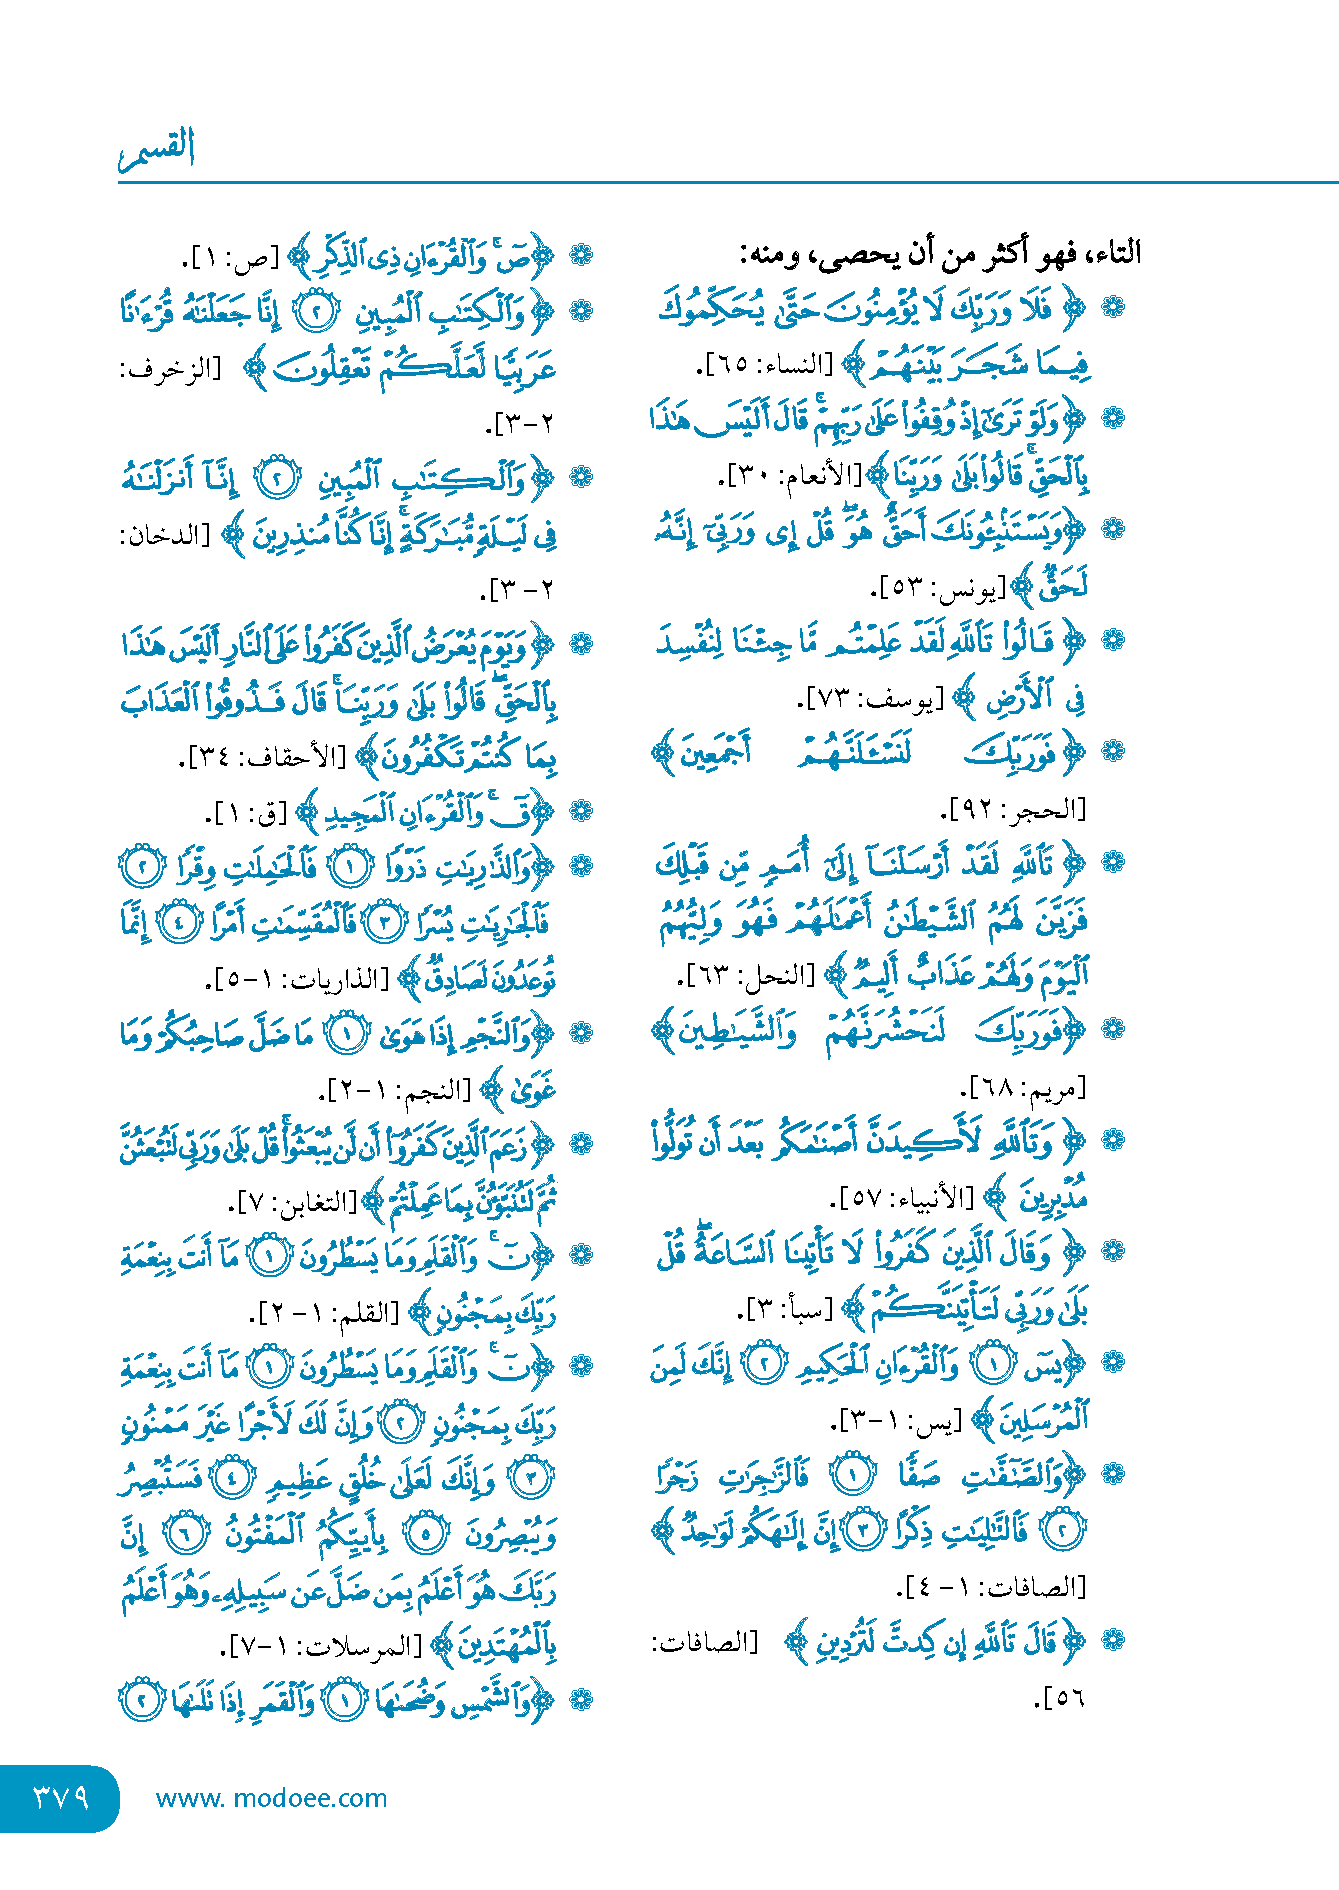 القسم
التاء، فهو أكثر من أن يحصى، ومنه:
﴿فَلَا وَرَبِّكَ لَا يُؤْمِنُونَ حَتَّىٰ يُحَكِّمُوكَ
فِيمَا شَجَرَ بَيْنَهُمْ﴾ [النساء: ٦٥].
﴿وَلَوْ تَرَىٰٓ إِذْ وُقِفُوا۟ عَلَىٰ رَبِّهِمْ ۚ قَالَ أَلَيْسَ هَـٰذَا
بِٱلْحَقِّ ۚ قَالُوا۟ بَلَىٰ وَرَبِّنَا﴾ [الأنعام: ٣٠].
﴿وَيَسْتَنۢبِـُٔونَكَ أَحَقٌّ هُوَ ۖ قُلْ إِى وَرَبِّىٓ إِنَّهُۥ
لَحَقٌّ﴾ [يونس: ٥٣].
﴿قَالُوا۟ تَٱللَّهِ لَقَدْ عَلِمْتُم مَّا جِئْنَا لِنُفْسِدَ
فِى ٱلْأَرْضِ﴾ [يوسف: ٧٣].
﴿فَوَرَبِّكَ لَنَسْـَٔلَنَّهُمْ أَجْمَعِينَ﴾
[الحجر: ٩٢].
﴿تَٱللَّهِ لَقَدْ أَرْسَلْنَآ إِلَىٰٓ أُمَمٍ مِّن قَبْلِكَ
فَزَيَّنَ لَهُمُ ٱلشَّيْطَـٰنُ أَعْمَـٰلَهُمْ فَهُوَ وَلِيُّهُمُ
ٱلْيَوْمَ وَلَهُمْ عَذَابٌ أَلِيمٌ﴾ [النحل: ٦٣].
﴿فَوَرَبِّكَ لَنَحْشُرَنَّهُمْ وَٱلشَّيَـٰطِينَ﴾
[مريم: ٦٨].
﴿وَتَٱللَّهِ لَأَكِيدَنَّ أَصْنَـٰمَكُم بَعْدَ أَن تُوَلُّوا۟
مُدْبِرِينَ﴾ [الأنبياء: ٥٧].
﴿وَقَالَ ٱلَّذِينَ كَفَرُوا۟ لَا تَأْتِينَا ٱلسَّاعَةُ ۖ قُلْ
بَلَىٰ وَرَبِّى لَتَأْتِيَنَّكُمْ﴾ [سبأ: ٣].
﴿يسٓ ١ وَٱلْقُرْءَانِ ٱلْحَكِيمِ ٢ إِنَّكَ لَمِنَ
ٱلْمُرْسَلِينَ﴾ [يس: ١-٣].
﴿وَٱلصَّـٰٓفَّـٰتِ صَفًّا ١ فَٱلزَّٰجِرَٰتِ زَجْرًا
٢ فَٱلتَّـٰلِيَـٰتِ ذِكْرًا ٣ إِنَّ إِلَـٰهَكُمْ لَوَٰحِدٌ﴾
[الصافات: ١- ٤].
﴿قَالَ تَٱللَّهِ إِن كِدتَّ لَتُرْدِينِ﴾ [الصافات:
٥٦].
﴿صٓ ۚ وَٱلْقُرْءَانِ ذِى ٱلذِّكْرِ﴾ [ص: ١].
﴿وَٱلْكِتَـٰبِ ٱلْمُبِينِ ٢ إِنَّا جَعَلْنَـٰهُ قُرْءَٰنًا
عَرَبِيًّا لَّعَلَّكُمْ تَعْقِلُونَ﴾ [الزخرف:
٢-٣].
﴿وَٱلْكِتَـٰبِ ٱلْمُبِينِ ٢ إِنَّآ أَنزَلْنَـٰهُ
فِى لَيْلَةٍ مُّبَـٰرَكَةٍ ۚ إِنَّا كُنَّا مُنذِرِينَ﴾ [الدخان:
٢- ٣].
﴿وَيَوْمَ يُعْرَضُ ٱلَّذِينَ كَفَرُوا۟ عَلَى ٱلنَّارِ أَلَيْسَ هَـٰذَا
بِٱلْحَقِّ ۖ قَالُوا۟ بَلَىٰ وَرَبِّنَا ۚ قَالَ فَذُوقُوا۟ ٱلْعَذَابَ
بِمَا كُنتُمْ تَكْفُرُونَ﴾ [الأحقاف: ٣٤].
﴿قٓ ۚ وَٱلْقُرْءَانِ ٱلْمَجِيدِ﴾ [ق: ١].
﴿وَٱلذَّٰرِيَـٰتِ ذَرْوًا ١ فَٱلْحَـٰمِلَـٰتِ وِقْرًا ٢
فَٱلْجَـٰرِيَـٰتِ يُسْرًا ٣ فَٱلْمُقَسِّمَـٰتِ أَمْرًا ٤ إِنَّمَا
تُوعَدُونَ لَصَادِقٌ﴾ [الذاريات: ١-٥].
﴿وَٱلنَّجْمِ إِذَا هَوَىٰ ١ مَا ضَلَّ صَاحِبُكُمْ وَمَا
غَوَىٰ﴾ [النجم: ١-٢].
﴿زَعَمَ ٱلَّذِينَ كَفَرُوٓا۟ أَن لَّن يُبْعَثُوا۟ ۚ قُلْ بَلَىٰ وَرَبِّى لَتُبْعَثُنَّ
ثُمَّ لَتُنَبَّؤُنَّ بِمَا عَمِلْتُمْ﴾ [التغابن: ٧].
﴿نٓ ۚ وَٱلْقَلَمِ وَمَا يَسْطُرُونَ ١ مَآ أَنتَ بِنِعْمَةِ
رَبِّكَ بِمَجْنُونٍ﴾ [القلم: ١- ٢].
﴿نٓ ۚ وَٱلْقَلَمِ وَمَا يَسْطُرُونَ ١ مَآ أَنتَ بِنِعْمَةِ
رَبِّكَ بِمَجْنُونٍ ٢ وَإِنَّ لَكَ لَأَجْرًا غَيْرَ مَمْنُونٍ
٣ وَإِنَّكَ لَعَلَىٰ خُلُقٍ عَظِيمٍ ٤ فَسَتُبْصِرُ
وَيُبْصِرُونَ ٥ بِأَييِّكُمُ ٱلْمَفْتُونُ ٦ إِنَّ
رَبَّكَ هُوَ أَعْلَمُ بِمَن ضَلَّ عَن سَبِيلِهِۦ وَهُوَ أَعْلَمُ
بِٱلْمُهْتَدِينَ﴾ [المرسلات: ١-٧].
﴿وَٱلشَّمْسِ وَضُحَىٰهَا ١ وَٱلْقَمَرِ إِذَا تَلَىٰهَا ٢
www. modoee.com
٣٧٩